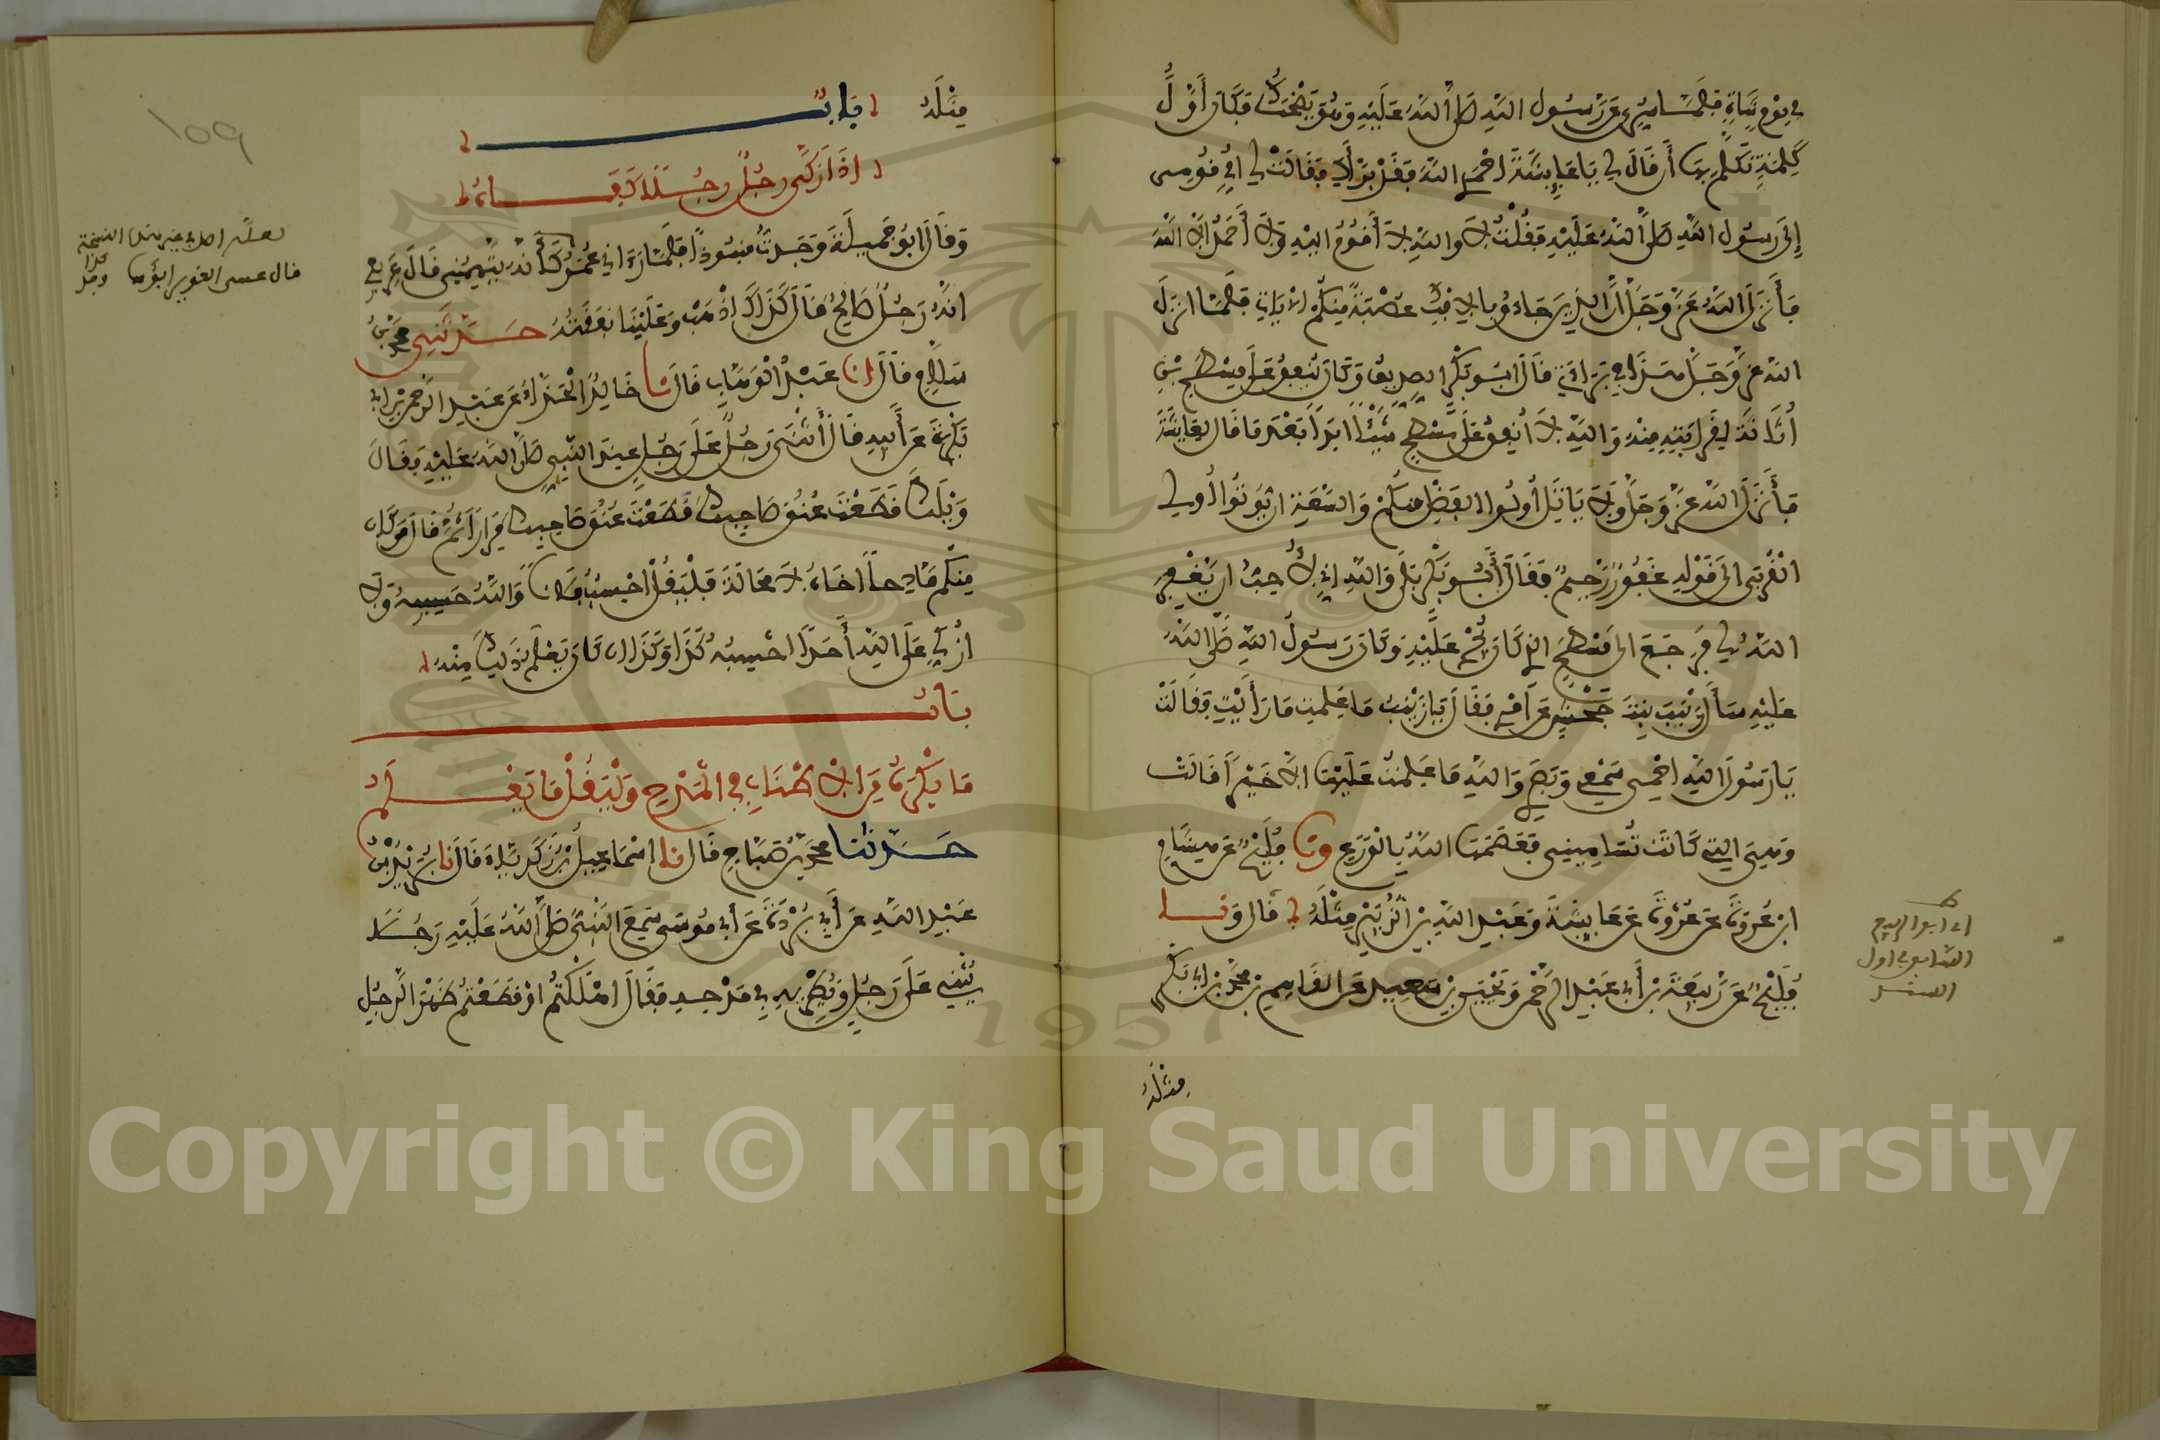 في يوم شات فلما سري عن رسول الله صلى الله عليه وهو يضحك فكان أول
كلمة تكلم بها أن قال لي يا عائشة احمدي الله فقد برأك فقالت لي أمي قومي
إلى رسول الله صلى الله عليه فقلت لا والله لا أقوم إليه ولا أحمد إلا الله
فأنزل الله عز وجل إن الذين جاءو بالافك عصبة منكم الايات فلما انزل
الله عز وجل هذا في براءتي قال أبو بكر الصديق وكان ينفق على مسطح بن
أثاثة لقرابته منه والله لا أنفق على مسطح شيئا ابدا بعد ما قال لعائشة
فأنزل الله عز وجل ولا ياتل أولوا الفضل منكم والسعة ان يوتوا أولي
القربى الى قوله غفور رحيم فقال أبو بكر بلى والله إني لأحب ان يغفر
الله لي فرجع الى مسطح الذي كان يجري عليه وكان رسول الله صلى الله
عليه سأل زينب بنت جحش عن أمري فقال يا زينب ما علمت ما رأيت فقالت
يا رسول الله احمي سمعي وبصري والله ما علمت عليها الا خيرا قالت
وهي التي كانت تساميني فعصمها الله بالورع ونا فليح عن هشام
ابن عروة عن عروة عن عائشة وعبد الله بن الزبير مثله قال ونا
فليح عن ربيعة بن أبي عبد الرحمن ويحيى بن سعيد عن القاسم بن محمد بن أبي بكر
مثله
ابو الربيع
اول
السند
109
مثله باب
اذا زكى رجل رجلا كفاه
وقال ابو جميلة وجدت منبوذا فلما رآني عمر كأنه يتهمني قال عريفي
انه رجل صالح قال كذاك اذهب وعلينا نفقته حدثني محمد بن
سلام قال انا عبد الوهاب قال نا خالد الحذاء عن عبد الرحمن بن ابي
بكرة عن أبيه قال أثنى رجل على رجل عند النبي صلى الله عليه فقال
ويلك قطعت عنق صاحبك قطعت عنق صاحبك مرارا ثم قال من كان
منكم مادحا اخاه لا محالة فليقل احسب فلانا والله حسيبه ولا
أزكي على الله أحدا احسبه كذا وكذا ان كان يعلم ذلك منه
باب
ما يكره من الاطناب في المدح وليقل ما يعلم
حدثنا محمد بن صباح قال نا اسماعيل بن زكرياء قال نا بريد بن
عبد الله عن أبي بردة عن أبي موسى سمع النبي صلى الله عليه رجلا
يثني على رجل ويطريه في مدحه فقال اهلكتم او قطعتم ظهر الرجل
النسخة
قال عسى الغوير ابؤسا
Copyright © King Saud University
1957